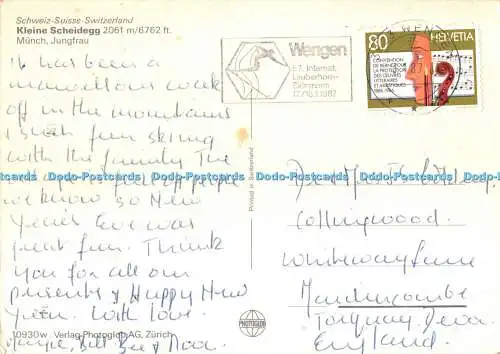 Schweiz-Suisse-Switzerland
Kleine Scheidegg 2061 m/6762 ft.
Münch, Jungfrau
It has been a
marvellous week
off in the mountains
Such fun skiing
with the family. The
full of people
we know so New
Years Eve was
great fun. Thank
you for all our
presents & Happy New
Year. With love
Bill, &
10930w Verlag Photoglob AG, Zürich
Printed in Switzerland
PHOTOGLOB
Wengen
57. Internat.
Lauberhorn-
Skirennen
17./18.1.1987
WENGEN
80
HELVETIA
CONVENTION
DE BERNE POUR
LA PROTECTION
DES ŒUVRES
LITTÉRAIRES
ET ARTISTIQUES
1886-1986
Collingwood
Whiteway Lane
Maidencombe
Torquay, Devon
England.
Dodo-Postcards Dodo-Postcards Dodo-Postcards Dodo-Postcards Dodo-Postcards Dodo-Postcards